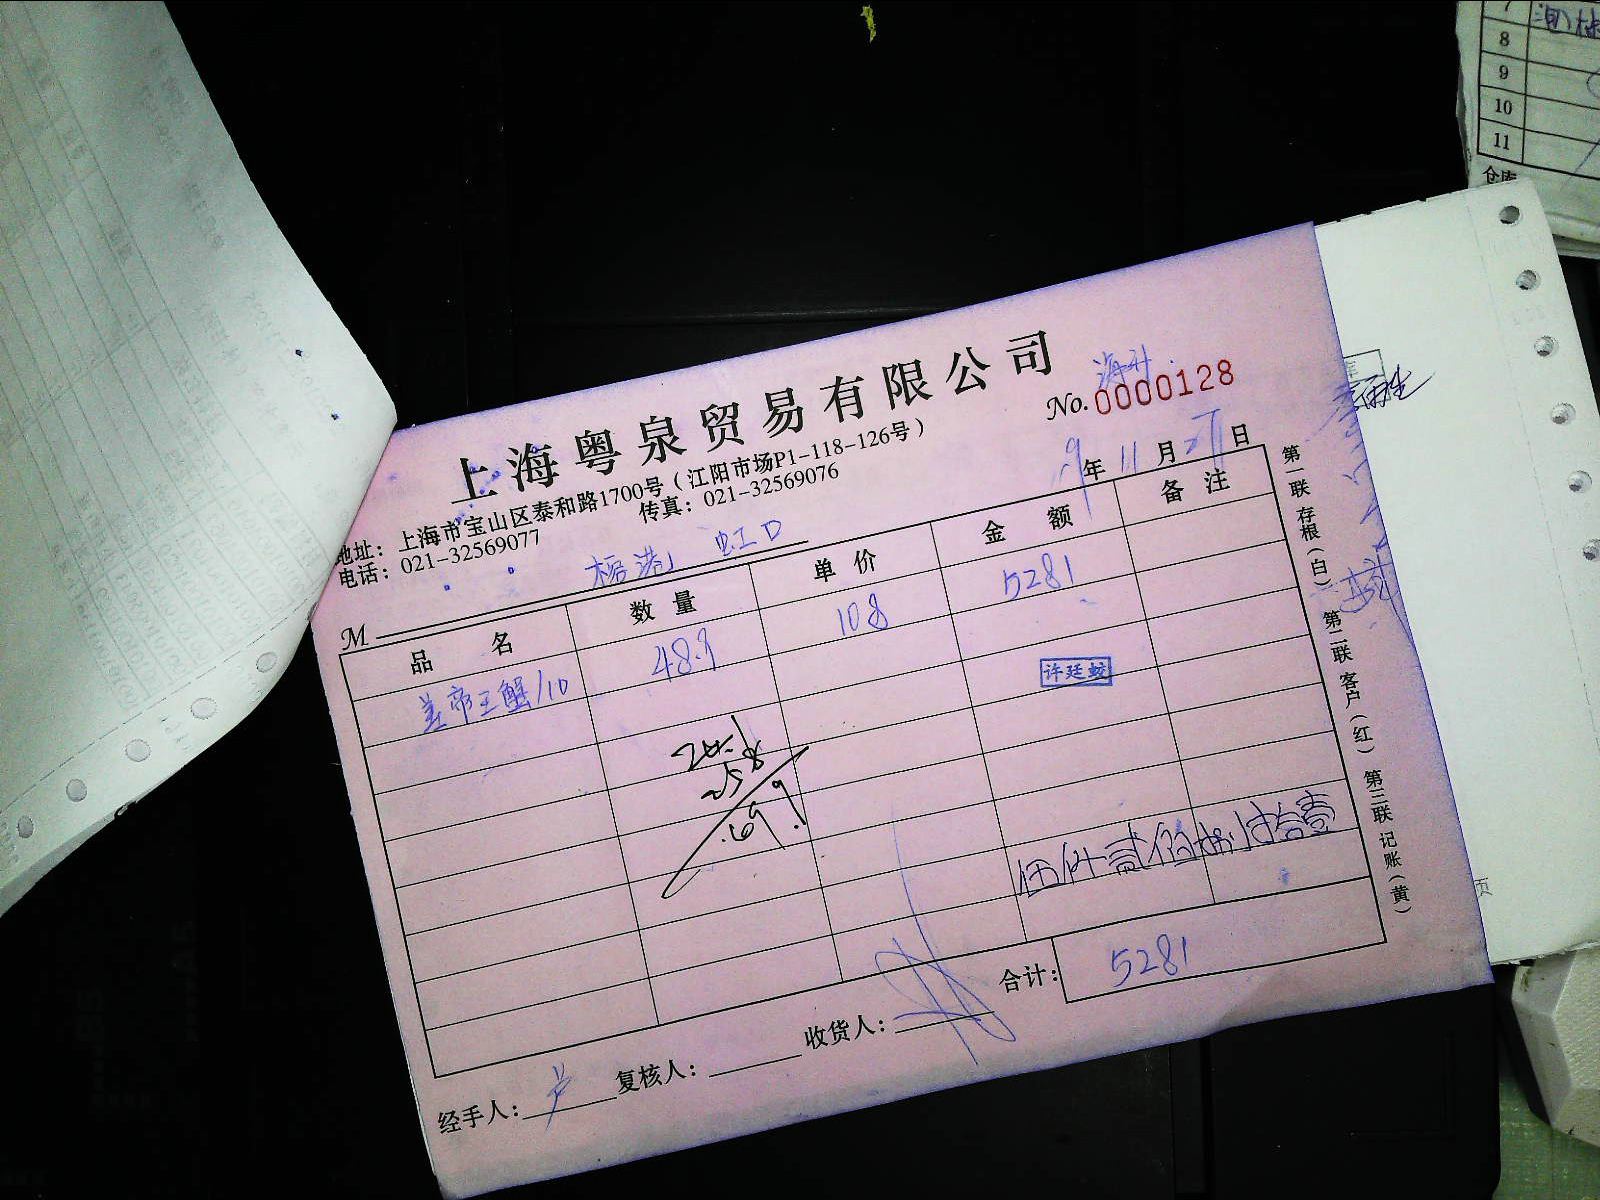 8
9
10
11
仓库
上海粤泉贸易有限公司
海升
No. 0000128
地址：上海市宝山区泰和路1700号（江阳市场P1-118-126号）
电话：021-32569077 传真：021-32569076
9年 11月 27日
M 虹口
品名 数量 单价 金额 备注
帝王蟹/10 48.9 108 5281
许廷蛟
伍仟贰佰捌拾壹
合计： 5281
经手人： 复核人： 收货人：
第一联 存根（白） 第二联 客户（红） 第三联 记账（黄）
页